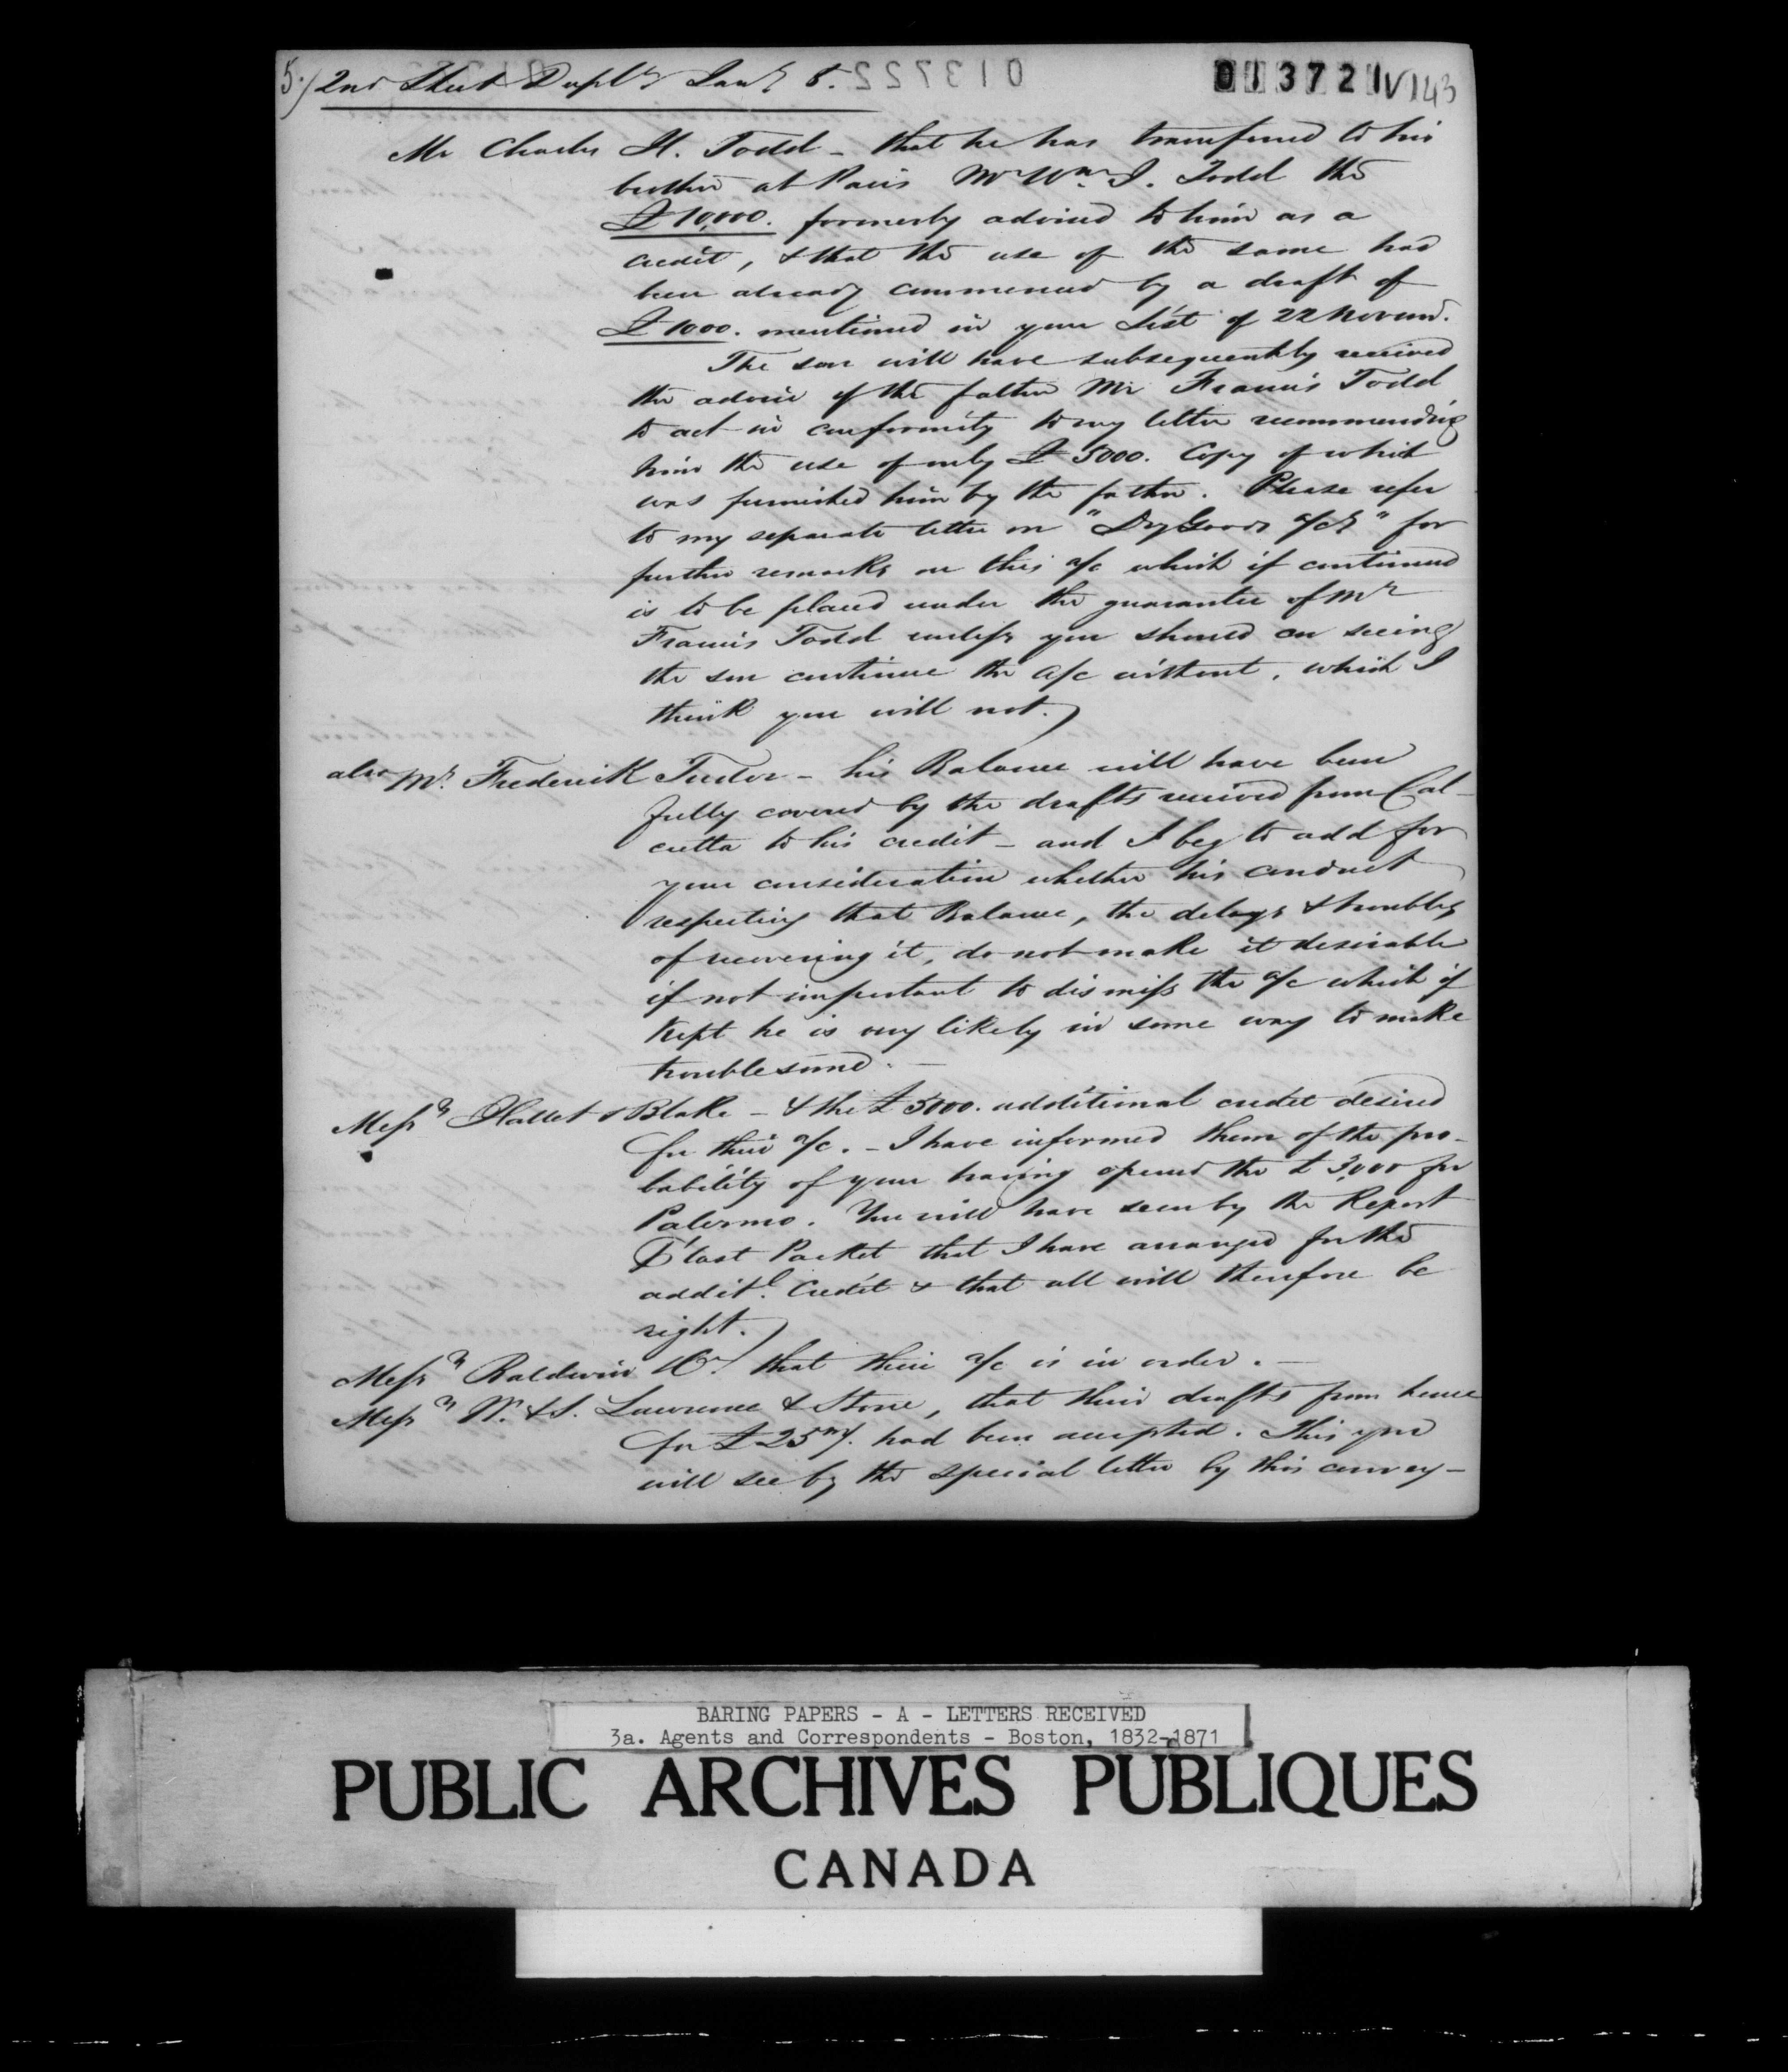 5.) 2nd Sheet Dupl. Jany 8. 013722 013721 V143
Mr Charles H. Todd - that he has transferred to his
brother at Paris Mr Wm. J. Todd the
£10,000. formerly advised to him as a
credit, & that the use of the same had
been already commenced by a draft of
£1000. mentioned in your List of 22 Novem.
The son will have subsequently received
the advice of the father Mr Francis Todd
to act in conformity to my letter recommending
him the use of only £5000. Copy of which
was furnished him by the father. Please refer
to my separate letter on "Dry Goods a/cs" for
further remarks on this a/c which if continued
is to be placed under the guarantee of Mr
Francis Todd unless you should on seeing
the son continue the a/c without, which I
think you will not.)
also Mr. Frederick Tudor - his Balance will have been
fully covered by the drafts received from Cal-
cutta to his credit - and I beg to add for
your consideration whether his conduct
respecting that Balance, the delays & troubles
of recovering it, do not make it desirable
if not important to dismiss the a/c which if
kept he is very likely in some way to make
troublesome. -
Messrs Hallet & Blake - & the £3000. additional credit desired
for their a/c. - I have informed them of the pro-
bability of your having opened the £3,000 for
Palermo. You will have seen by the Report
P last Packet that I have arranged for the
addit.l Credit & that all will therefore be
right.)
Messrs Baldwin &Co. that their a/c is in order. -
Messrs W. & S. Lawrence & Stone, that their drafts from hence
for £25m/. had been accepted. This you
will see by the special letter by this convey-
BARING PAPERS - A - LETTERS RECEIVED
3a. Agents and Correspondents - Boston, 1832-1871
PUBLIC ARCHIVES PUBLIQUES
CANADA